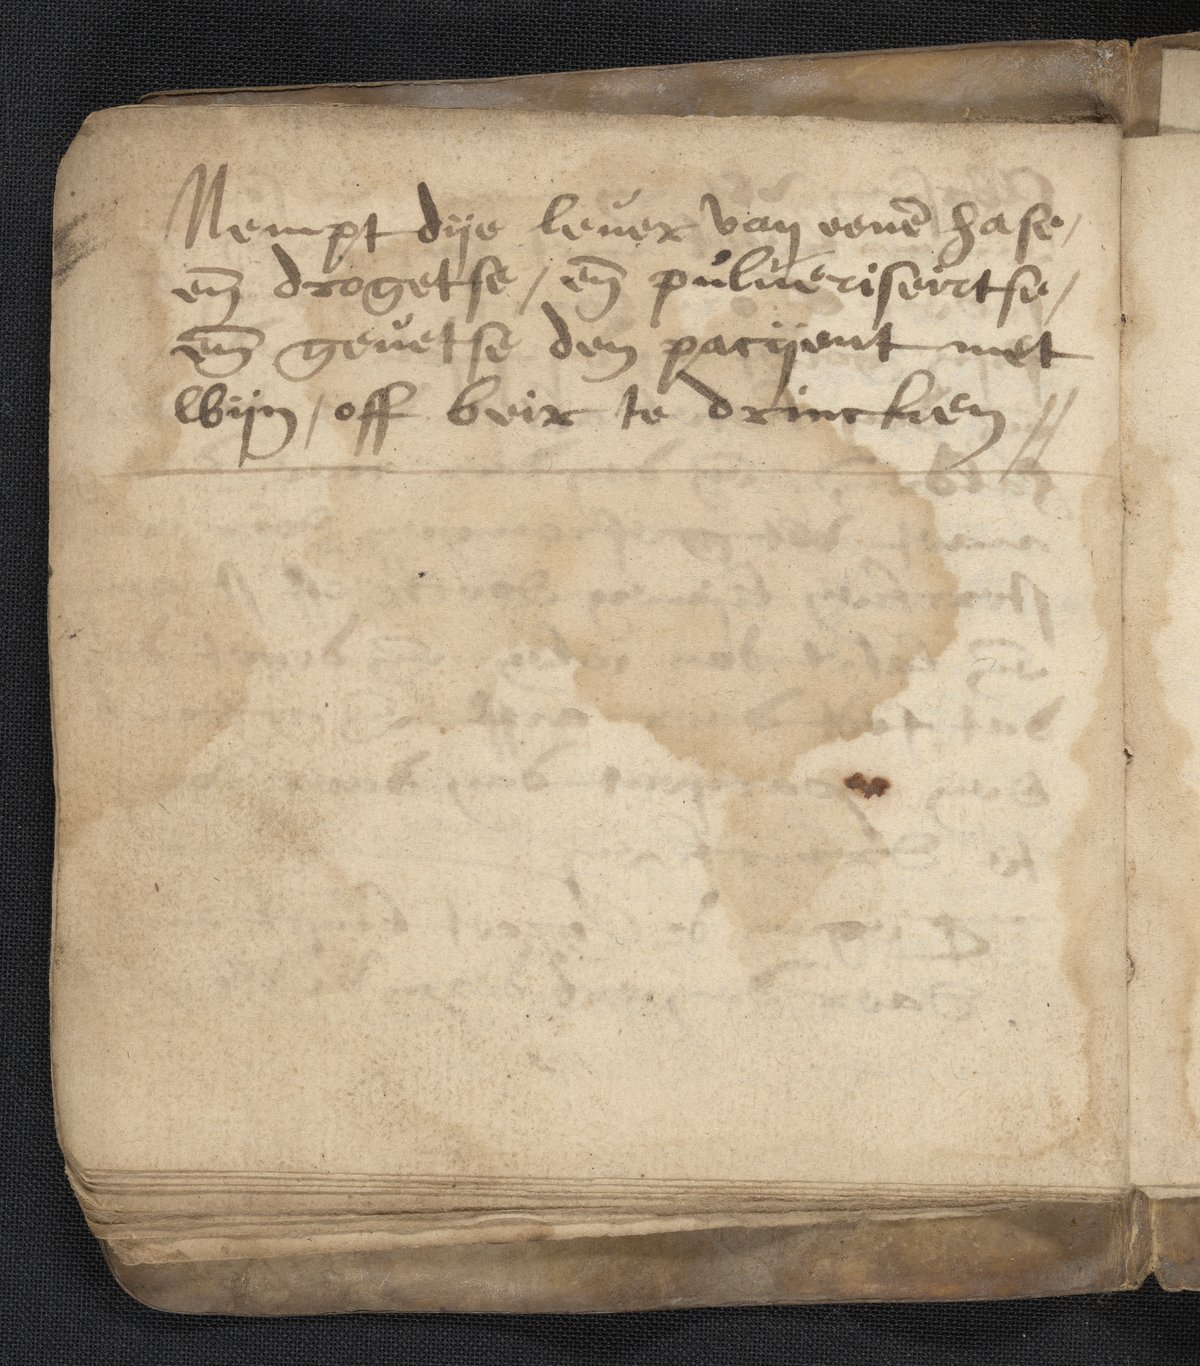 Nempt dije leuer van eenē hase /
en̄ drogetse / en̄ puluerisertse /
en̄ geuetse den pacijent met
wijn / off beir te drincken //